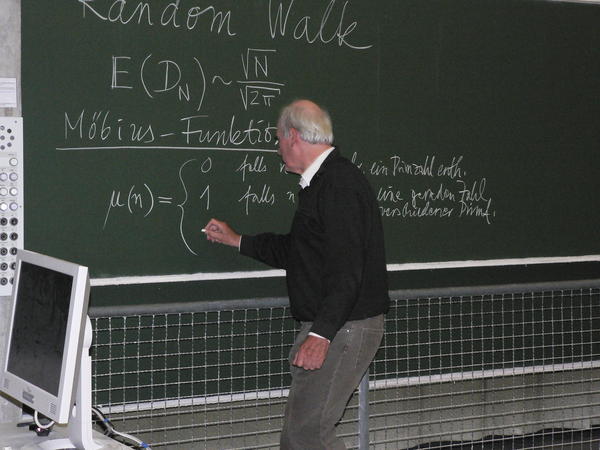 Random Walk
E(D_N) ~ √N / √2π
Möbius-Funktio
μ(n) = { 0 falls n ein Primzahl enth.
1 falls n eine geraden Zahl
verschiedener Primf.